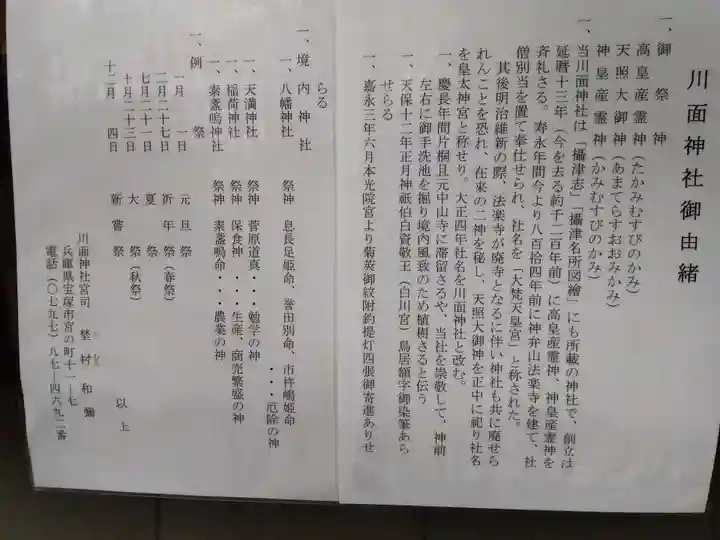 川面神社御由緒
一、御祭神
高皇産霊神(たかみむすびのかみ)
天照大御神(あまてらすおおみかみ)
神皇産霊神(かみむすびのかみ)
一、当川面神社は「攝津志」「攝津名所図繪」にも所載の神社で、創立は
延暦十三年(今を去る約千二百年前)に高皇産霊神、神皇産霊神を
斉礼さる。寿永年間今より八百拾四年前に神弁山法楽寺を建て、社
僧別当を置て奉仕せられ、社名を「大梵天皇宮」と称された。
其後明治維新の際、法楽寺が廃寺となるに伴い神社も共に廃せら
れんことを恐れ、在来の二神を秘し、天照大御神を正中に祀り社名
を皇太神宮と称せり。大正四年社名を川面神社と改む。
一、慶長年間片桐且元中山寺に滞留さるや、当社を崇敬して、神前
左右に御手洗池を掘り境内風致のため植樹さると伝う
一、天保十二年正月神祇伯白資敬王(白川宮)鳥居額字御染筆あら
せらる
一、嘉永三年六月本光院宮より菊英御紋附釣提灯四張御寄進ありせ
らる
一、境内神社
一、八幡神社 祭神 息長足姫命、誉田別命、市杵嶋姫命
・・・厄除の神
一、天満神社 祭神 菅原道真・・・勉学の神
一、稲荷神社 祭神 保食神・・・生産、商売繁盛の神
一、素盞嗚神社 祭神 素盞嗚命・・・農業の神
一、例祭
一月一日 元旦祭
二月二十七日 祈年祭(春祭)
七月二十一日 夏祭
十月二十三日 大祭(秋祭)
十二月四日 新嘗祭
以上
川面神社宮司 村和彌
兵庫県宝塚市宮の町十一ー七
電話(〇七九七)八七ー四六九二番